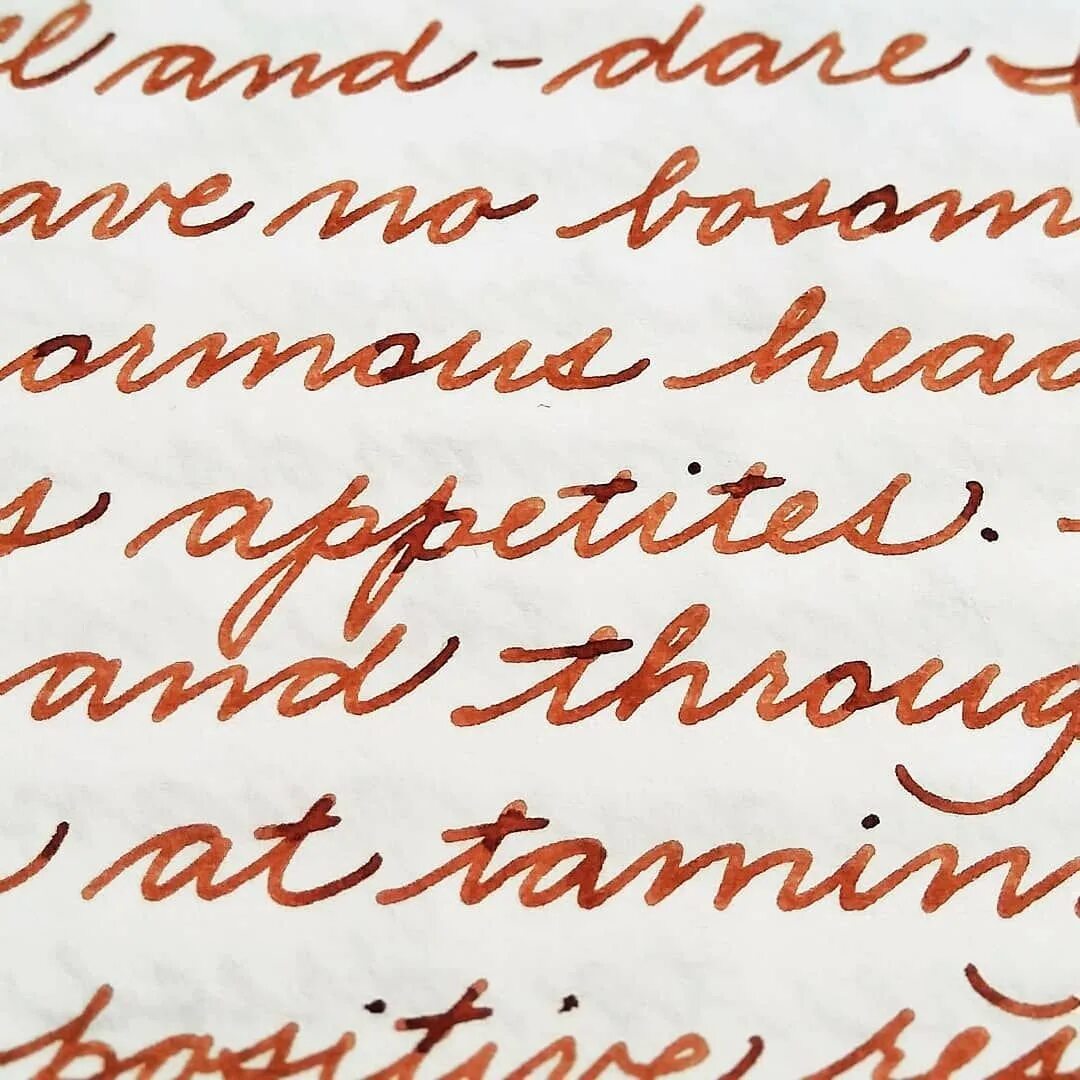 el and - dare I
ave no bosom
ormous head
s appetites. -
and throug
at taming
positive res